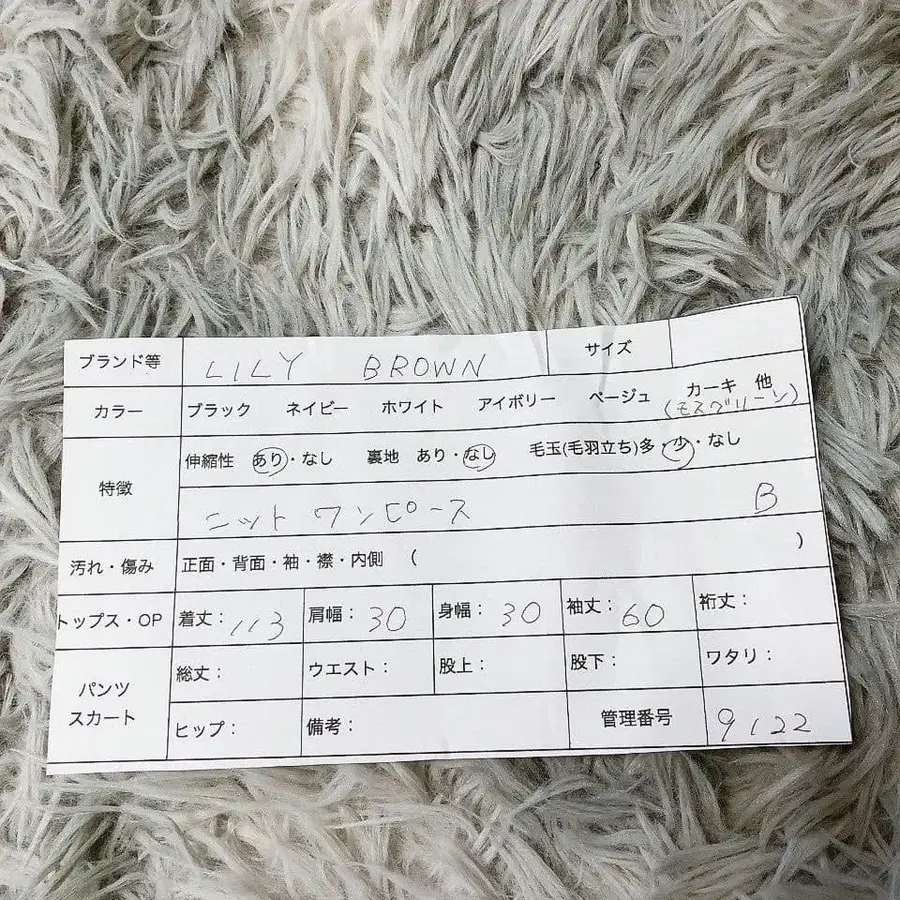 ブランド等 LILY BROWN サイズ
カラー ブラック ネイビー ホワイト アイボリー ベージュ カーキ 他
(モスグリーン)
特徴 伸縮性 あり・なし 裏地 あり・なし 毛玉(毛羽立ち)多・少・なし
ニットワンピース B
汚れ・傷み 正面・背面・袖・襟・内側 ( )
トップス・OP 着丈: 113 肩幅: 30 身幅: 30 袖丈: 60 裄丈:
パンツ スカート 総丈: ウエスト: 股上: 股下: ワタリ:
ヒップ: 備考: 管理番号 9122